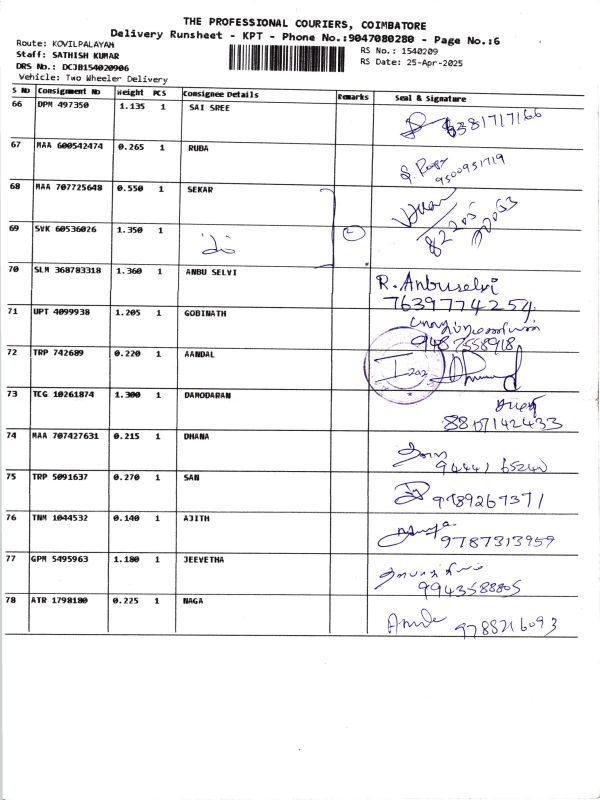 THE PROFESSIONAL COURIERS, COIMBATORE
Delivery Runsheet - KPT - Phone No.:9047080280 - Page No.:6
Route: KOVILPALAYAM
RS No.: 1540209
Staff: SATHISH KUMAR
RS Date: 25-Apr-2025
DRS No.: DCJB154020906
Vehicle: Two Wheeler Delivery
S No Consignment No Weight PCS Consignee Details Remarks Seal & Signature
66 DPM 497350 1.135 1 SAI SREE 6381717166
67 MAA 600542474 0.265 1 RUBA
9500951719
68 MAA 707725648 0.550 1 SEKAR
69 SVK 60536026 1.350 1
70 SLM 368783318 1.360 1 ANBU SELVI R. Anbuselvi
7639774254
71 UPT 4099938 1.205 1 GOBINATH
9487558918
72 TRP 742689 0.220 1 AANDAL
73 TCG 10261874 1.300 1 DAMODARAN
74 MAA 707427631 0.215 1 DHANA
94441 65240
75 TRP 5091637 0.270 1 SAN 9789267371
76 TNM 1044532 0.140 1 AJITH
9787313959
77 GPM 5495963 1.180 1 JEEVETHA
9943588805
78 ATR 1798180 0.225 1 NAGA
9788216093